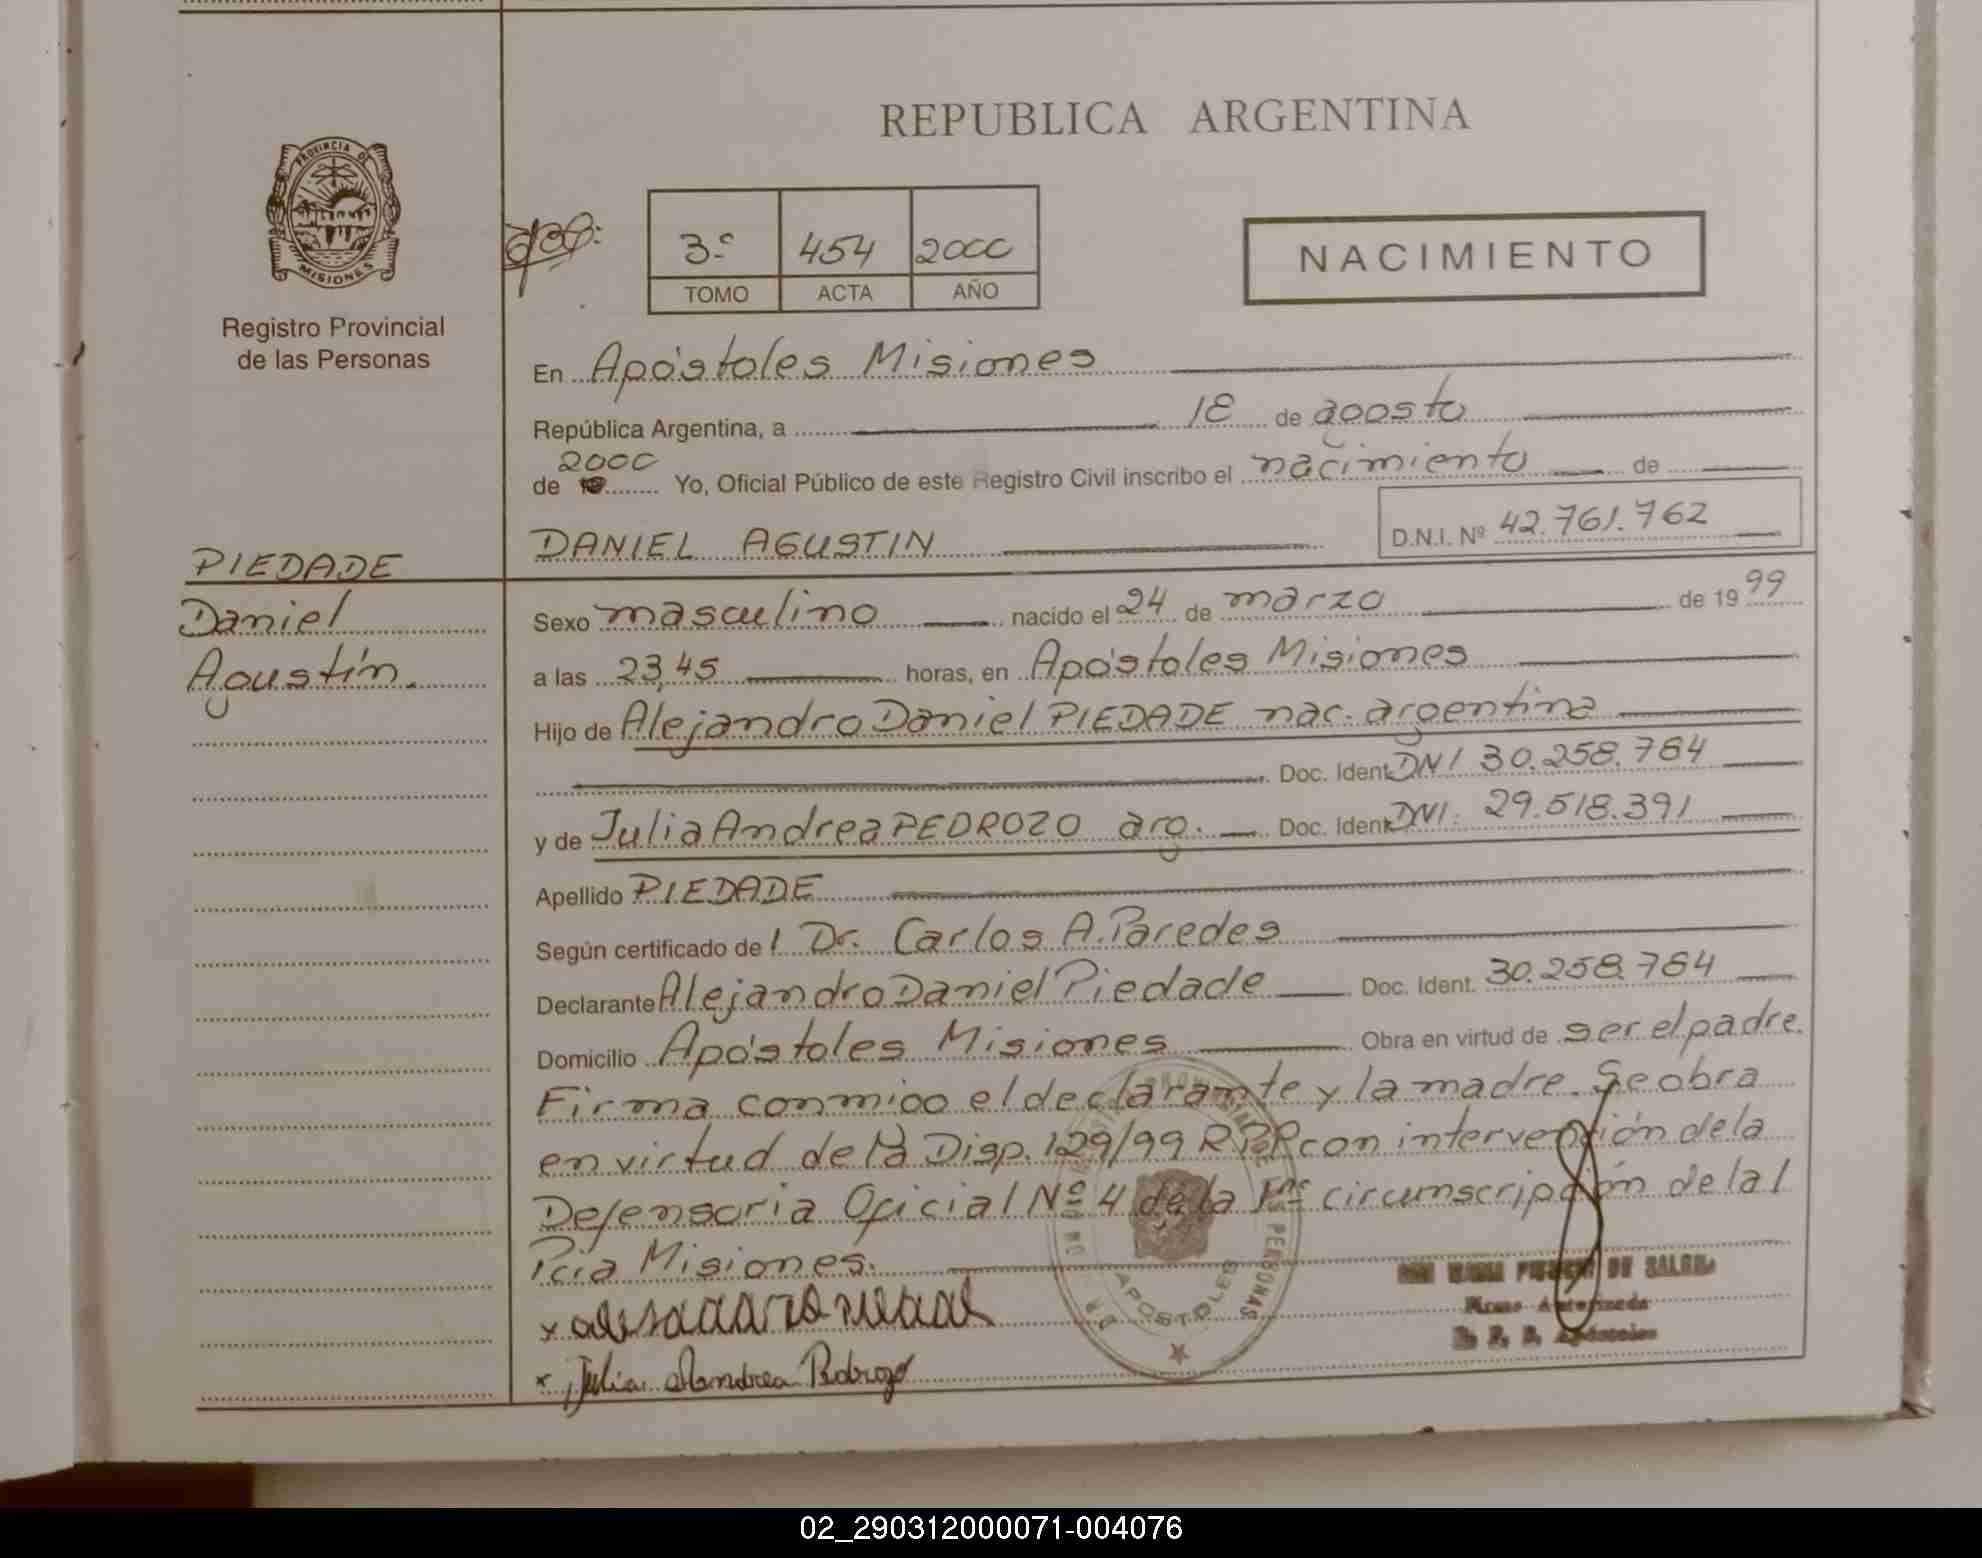 REPUBLICA ARGENTINA
PROVINCIA DE
MISIONES
Registro Provincial
de las Personas
3º 454 2000
TOMO ACTA AÑO
NACIMIENTO
En Apóstoles Misiones
República Argentina, a 18 de agosto
de 2000 Yo, Oficial Público de este Registro Civil inscribo el nacimiento de
DANIEL AGUSTIN D.N.I. Nº 42.761.762
PIEDADE
Daniel
Agustín.
Sexo masculino nacido el 24 de marzo de 1999
a las 23,45 horas, en Apóstoles Misiones
Hijo de Alejandro Daniel PIEDADE nac. argentina
Doc. Ident. DNI 30.258.784
y de Julia Andrea PEDROZO arg. Doc. Ident. DNI. 29.518.391
Apellido PIEDADE
Según certificado de l Dr. Carlos A. Paredes
Declarante Alejandro Daniel Piedade Doc. Ident. 30.258.784
Domicilio Apóstoles Misiones Obra en virtud de ser el padre.
Firma conmigo el declarante y la madre. Se obra
en virtud de la Disp. 129/99 RPP con intervención de la
Defensoria Oficial Nº 4 de la 1ra circunscripción de la
Pcia Misiones.
x
x Julia Andrea Pedrozo
APOSTOLES
DE SALOM
Firma Autorizada
Apóstoles
02_290312000071-004076